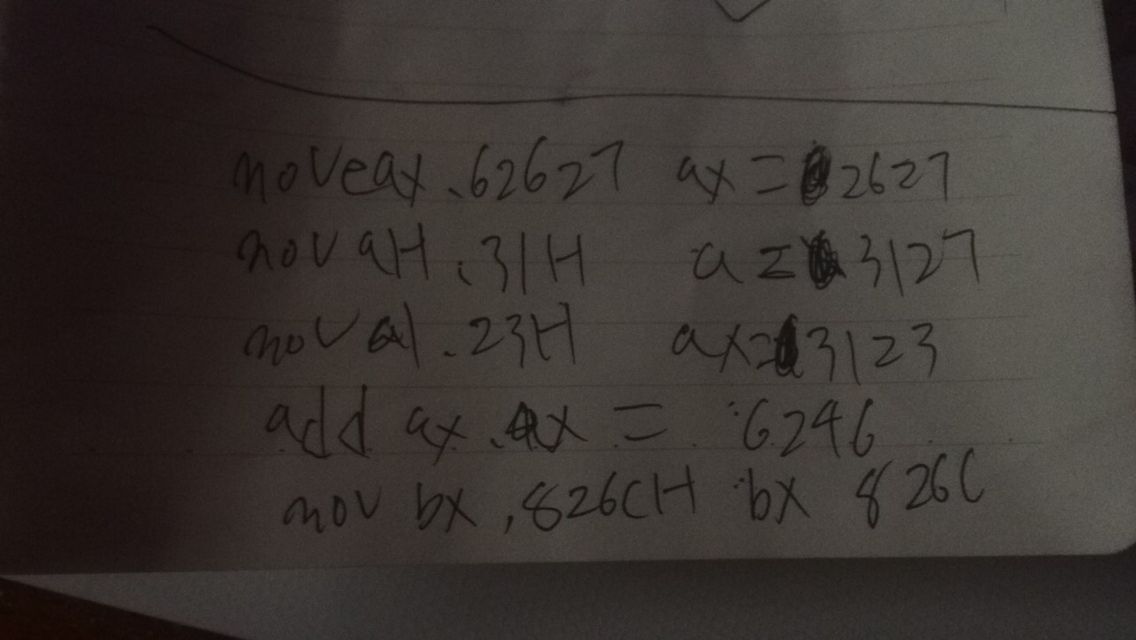 moveax.62627 ax=2627
mov aH.31H a=3127
mov al.23H ax=3123
add ax.ax = 6246
mov bx,826CH bx 826C